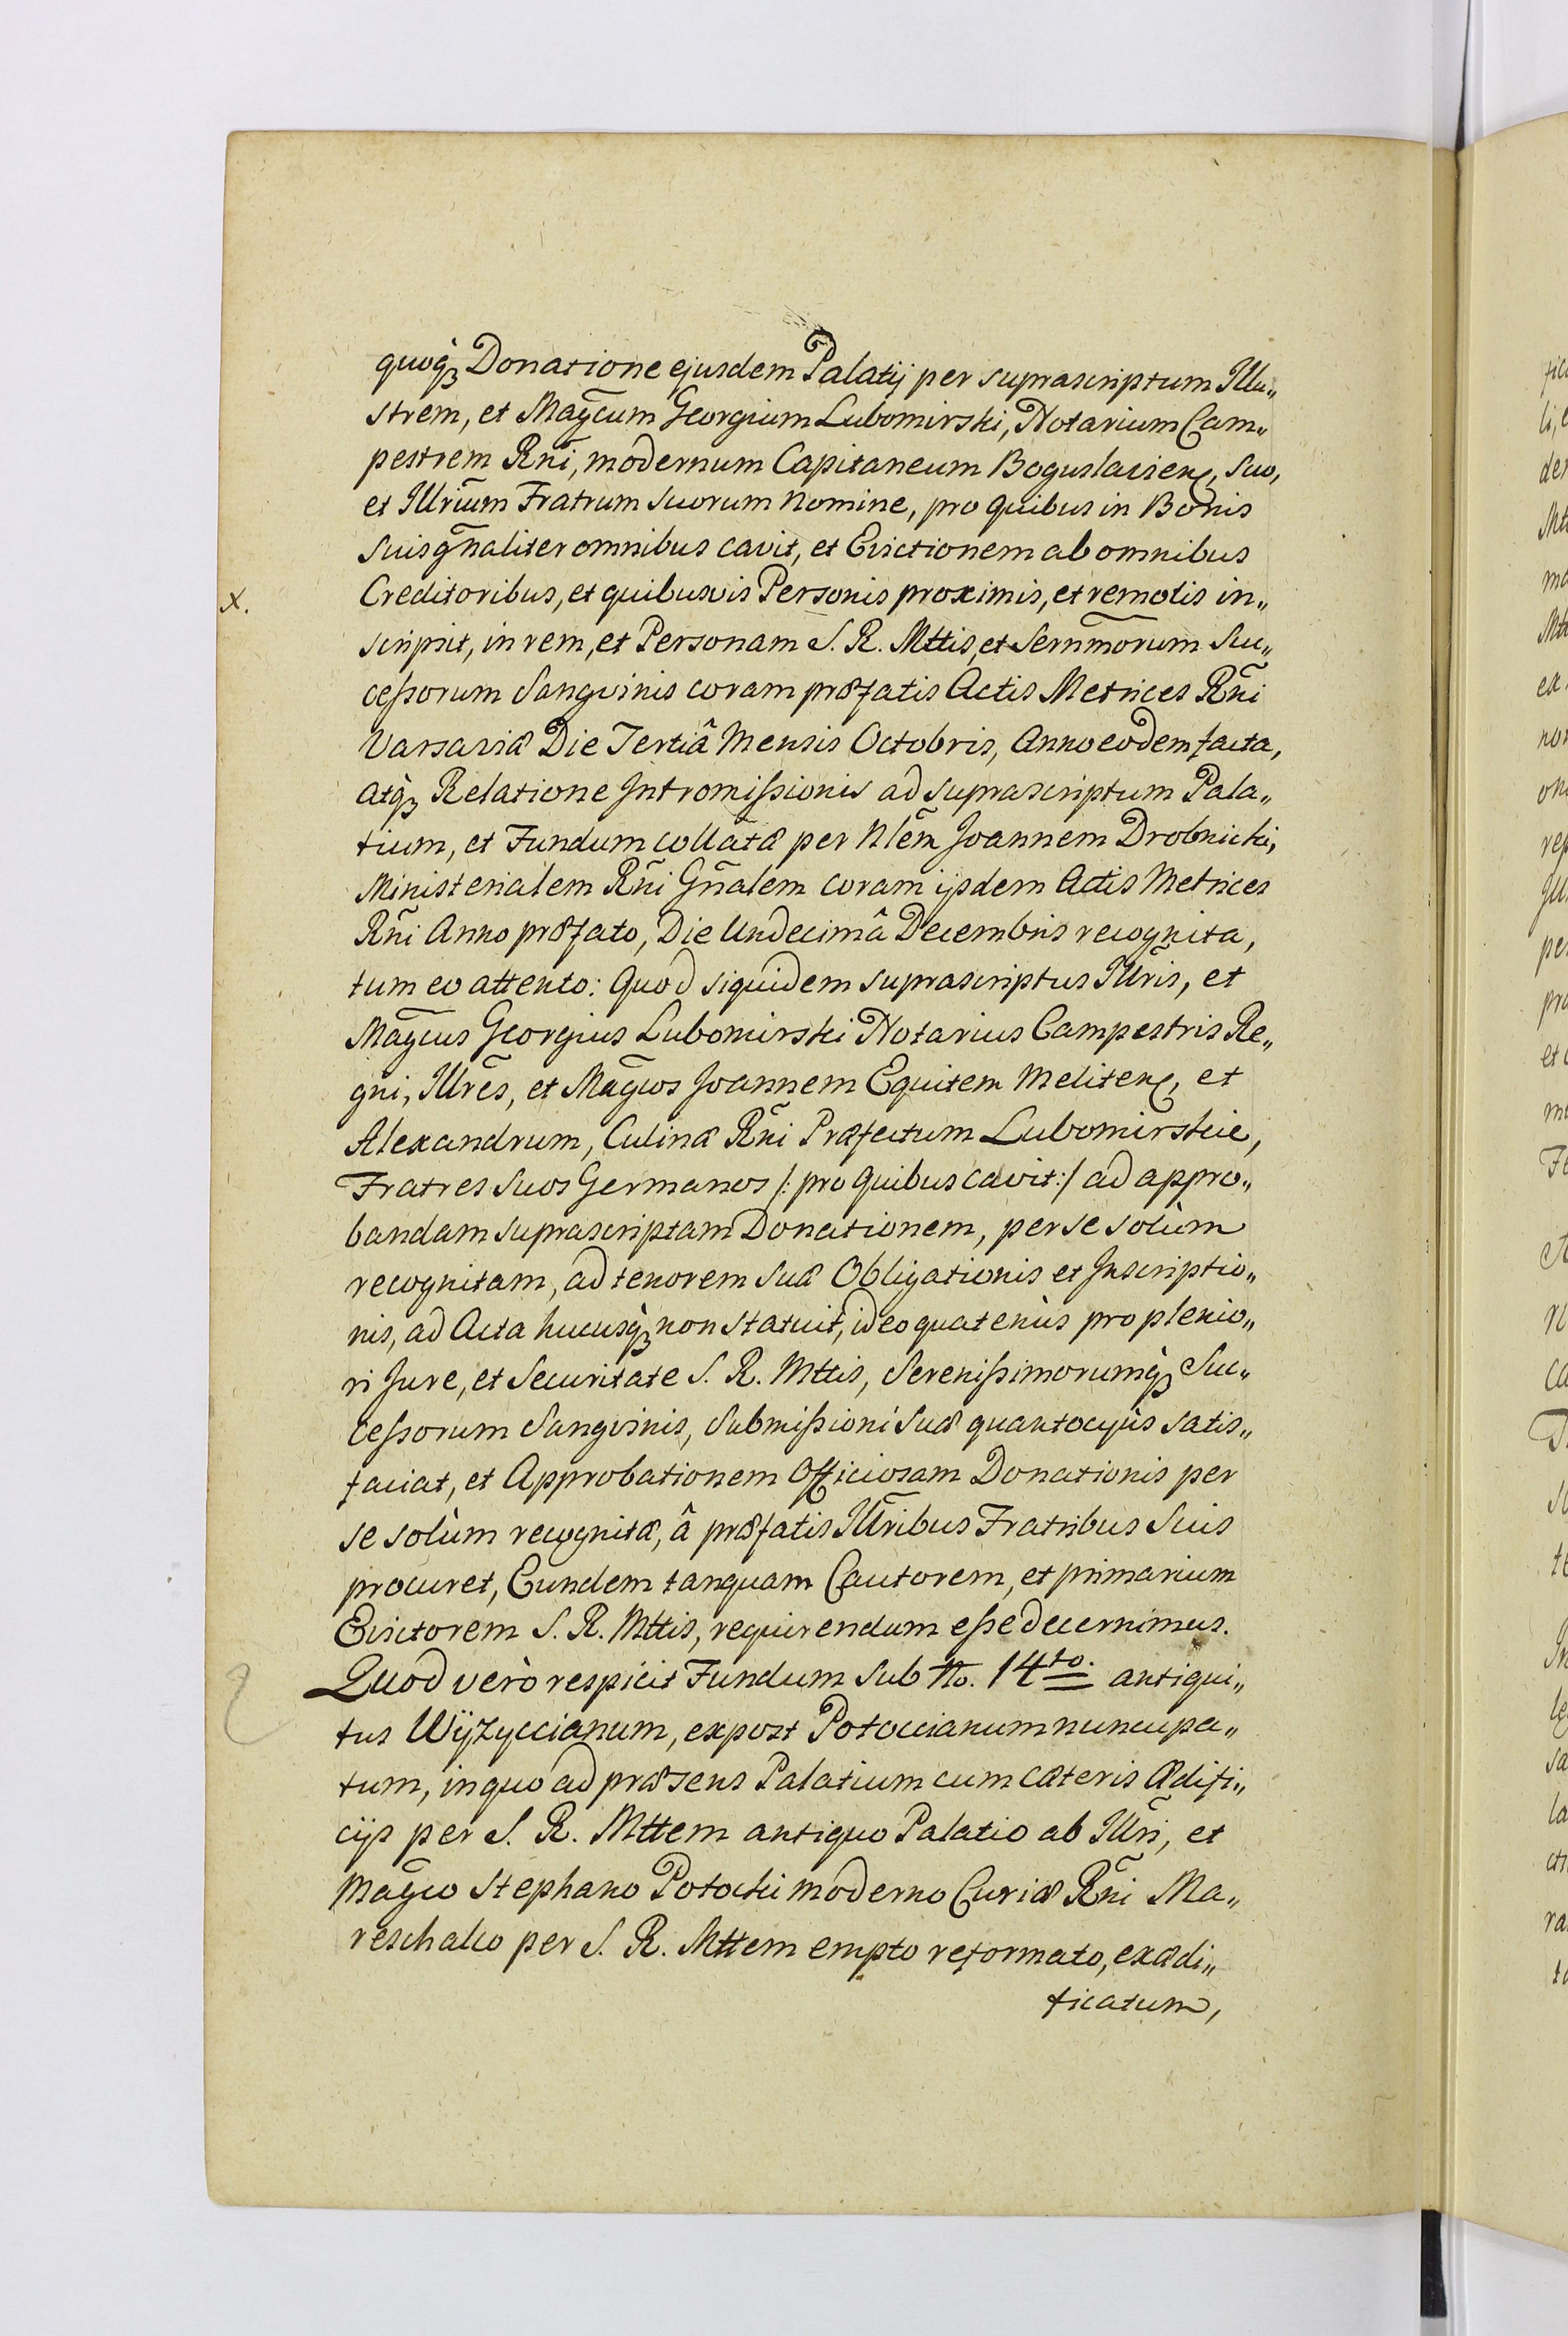 quoq̀ꝫ Donatione ejusdem Palatij per suprascriptum Illu„
strem, et Mag̃cum Georgium Lubomirski, Notarium Cam„
pestrem Rñi, modernum Capitaneum Boguslavienę, suo,
et Illriũm Fratrum suorum Nomine, pro quibus in Bonis
suis gñaliter omnibus cavit, et Evictionem ab omnibus
X. Creditoribus, et quibusvis Personis proximis, et remotis in„
scripsit, in rem, et Personam S. R. Mttis, et Sernm̃orum Suc„
ceſsorum Sangvinis coram præfatis Actis Metrices Rñi
Varsaviæ Die Tertiâ Mensis Octobris, Anno eodem facta,
atq̀ꝫ Relatione Intromiſsionis ad suprascriptum Pala„
tium, et Fundum collatæ per Nlem̃ Joannem Drobnicki,
Ministerialem Rñi Gñalem coram ijsdem Actis Metrices
Rñi Anno præfato, Die Undecimâ Decembris recognita,
tum eo attento: Quod siquidem suprascriptus Illr̃is, et
Mag̃cus Georgius Lubomirski Notarius Campestris Re„
gni, Illr̃es, et Mag̃cos Joannem Equitem Melitenę, et
Alexandrum, Culinæ Rñi Præfectum Lubomirskie,
Fratres suos Germanos /: pro quibus cavit :/ ad appro„
bandam suprascriptam Donationem, per se solùm
recognitam, ad tenorem suæ Obligationis et Inscriptio„
nis, ad Acta hucusq̀ꝫ non statuit, ideo quatenùs pro plenio„
ri Jure, et Securitate S. R. Mttis, Sereniſsimorumq̀ꝫ Suc„
ceſsorum Sangvinis, Submiſsioni suæ quantocyùs satis„
faciat, et Approbationem Officiosam Donationis per
se solùm recognitæ, â præfatis Illr̃ibus Fratribus suis
procuret, Eundem tanquam Cautorem, et primarium
Evictorem S. R. Mttis, requirendum eſse decernimus.
Quod verò respicit Fundum sub No. 14to. antiqui„
tus Wÿzyccianum, expost Potoccianum nuncupa„
tum, in quo ad præsens Palatium cum cæteris Ædifi„
cijs per S. R. Mttem antiquo Palatio ab Illr̃i, et
Mag̃co Stephano Potocki moderno Curiæ Rñi Ma„
reschalco per S. R. Mttem empto reformato, exædi„
ficatum,